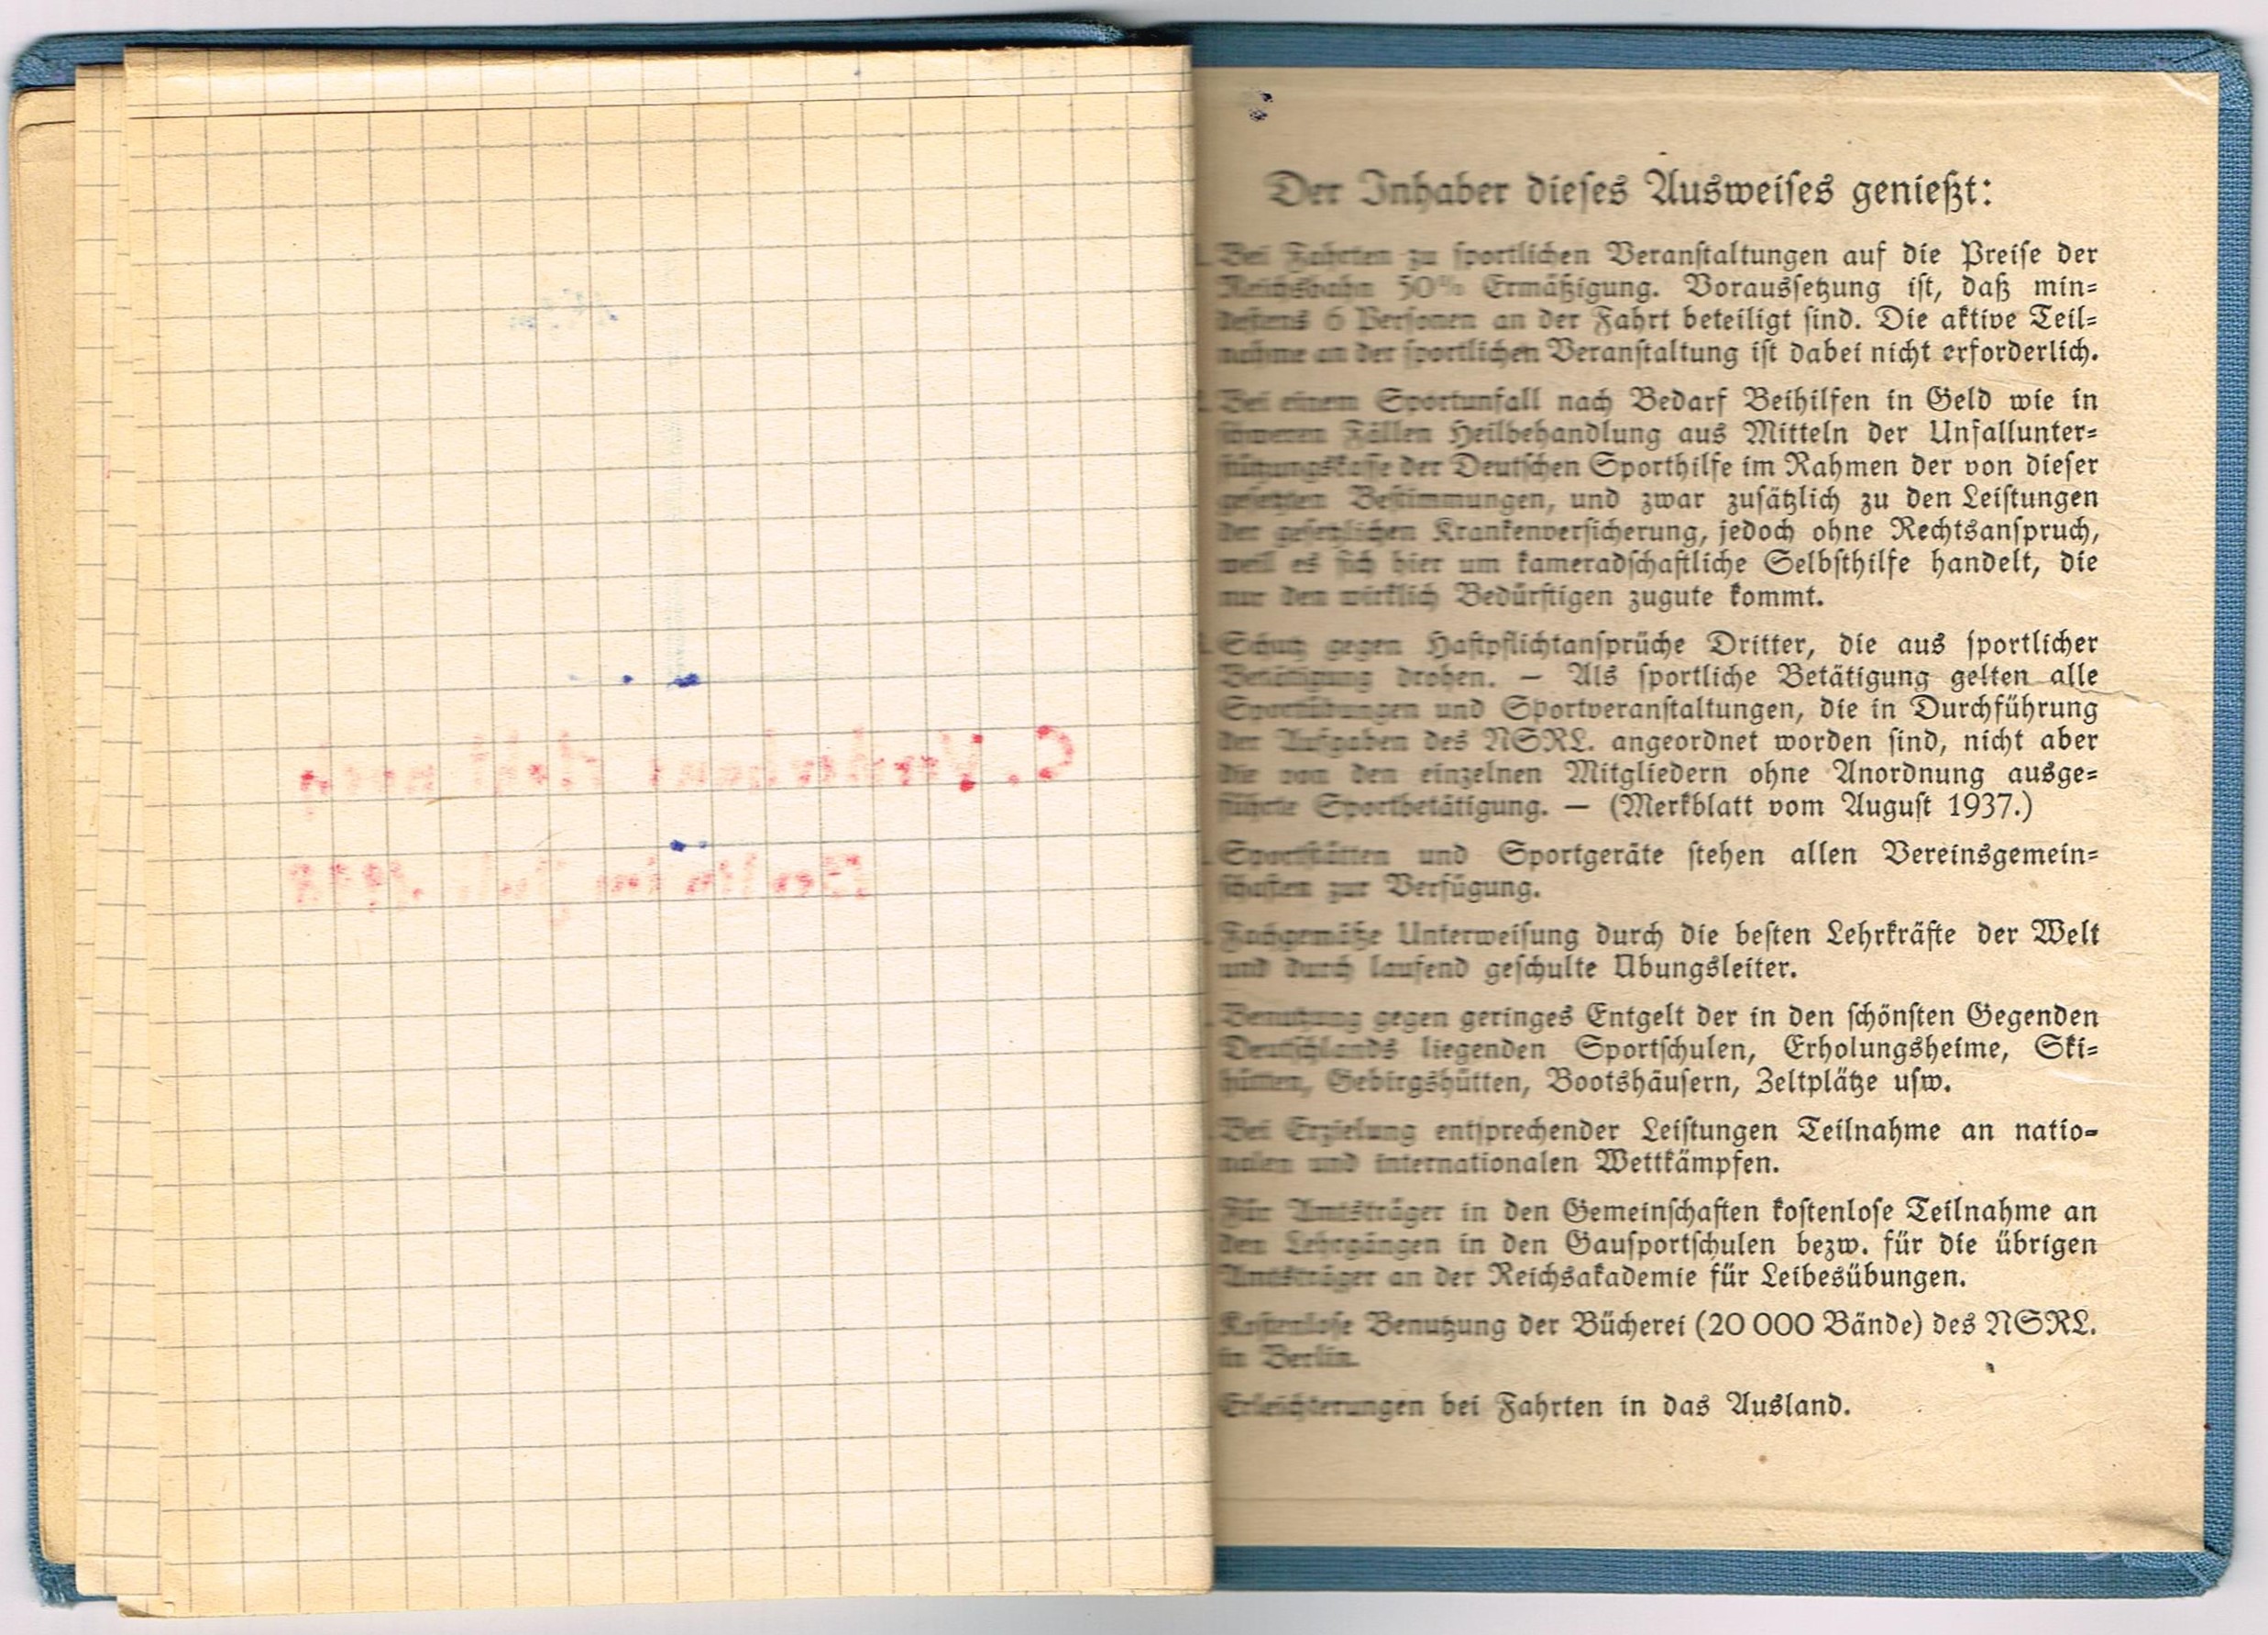 Der Inhaber dieses Ausweises genießt:
Bei Fahrten zu sportlichen Veranstaltungen auf die Preise der
Reichsbahn 50% Ermäßigung. Voraussetzung ist, daß min-
destens 6 Personen an der Fahrt beteiligt sind. Die aktive Teil-
nahme an der sportlichen Veranstaltung ist dabei nicht erforderlich.
Bei einem Sportunfall nach Bedarf Beihilfen in Geld wie in
schweren Fällen Heilbehandlung aus Mitteln der Unfallunter-
stützungskasse der Deutschen Sporthilfe im Rahmen der von dieser
gesetzten Bestimmungen, und zwar zusätzlich zu den Leistungen
der gesetzlichen Krankenversicherung, jedoch ohne Rechtsanspruch,
weil es sich hier um kameradschaftliche Selbsthilfe handelt, die
nur den wirklich Bedürftigen zugute kommt.
Schutz gegen Haftpflichtansprüche Dritter, die aus sportlicher
Betätigung drohen. — Als sportliche Betätigung gelten alle
Sportübungen und Sportveranstaltungen, die in Durchführung
der Aufgaben des NSRL. angeordnet worden sind, nicht aber
die von den einzelnen Mitgliedern ohne Anordnung ausge-
führte Sportbetätigung. — (Merkblatt vom August 1937.)
Sportstätten und Sportgeräte stehen allen Vereinsgemein-
schaften zur Verfügung.
Fachgemäße Unterweisung durch die besten Lehrkräfte der Welt
und durch laufend geschulte Übungsleiter.
Benutzung gegen geringes Entgelt der in den schönsten Gegenden
Deutschlands liegenden Sportschulen, Erholungsheime, Ski-
hütten, Gebirgshütten, Bootshäusern, Zeltplätze usw.
Bei Erzielung entsprechender Leistungen Teilnahme an natio-
nalen und internationalen Wettkämpfen.
Für Amtsträger in den Gemeinschaften kostenlose Teilnahme an
den Lehrgängen in den Gausportschulen bezw. für die übrigen
Amtsträger an der Reichsakademie für Leibesübungen.
Kostenlose Benutzung der Bücherei (20 000 Bände) des NSRL.
in Berlin.
Erleichterungen bei Fahrten in das Ausland.